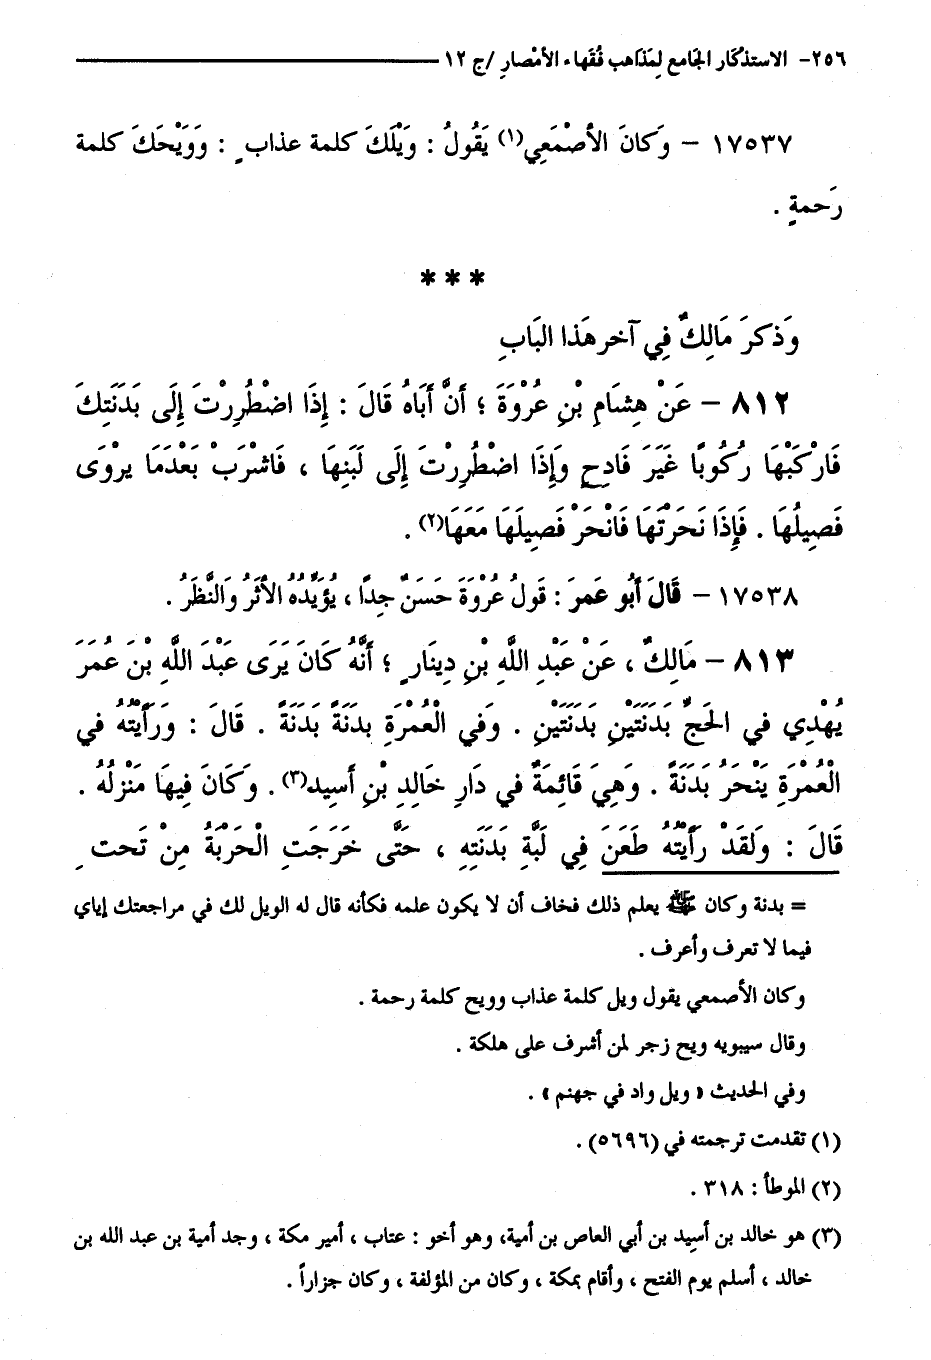 ٢٥٦- الاستذْكَار الجَامع لِمَذاهب فُقَهاء الأمْصارِ /ج ١٢
١٧٥٣٧ – وَكانَ الأصْمَعِي(١) يَقُولُ : وَيْلَكَ كلمة عذاب ٍ : وَوَيْحَكَ كلمة
رَحمةٍ .
* * *
وَذكرَ مَالِكٌ فِي آخر هَذا البَابِ
٨١٢ – عَنْ هِشَامِ بْنِ عُرْوَةَ ؛ أَنَّ أَبَاهُ قَالَ : إِذَا اضْطُرِرْتَ إِلَى بَدَنَتِكَ
فَارْكَبْهَا رُكُوبًا غَيْرَ فَادِحٍ وَإِذَا اضْطُرِرْتَ إِلَى لَبَنِهَا ، فَاشْرَبْ بَعْدَمَا يرْوَى
فَصِيلُهَا . فَإِذَا نَحَرْتَهَا فَانْحَرْ فَصِيلَهَا مَعَهَا(٢) .
١٧٥٣٨ – قَالَ أَبُو عَمرَ : قَولُ عُرْوَةَ حَسَنٌ جِداً ، يُؤَيِّدُهُ الأثَرُ وَالنَّظَرُ .
٨١٣ – مَالِكٌ ، عَنْ عَبْدِ اللَّهِ بْنِ دِينَارٍ ؛ أَنَّهُ كَانَ يَرَى عَبْدَ اللَّهِ بْنَ عُمَرَ
يُهْدِي في الحَجِّ بَدَنَتَيْنِ بَدَنَتَيْنِ . وَفي الْعُمْرَةِ بدَنَةً بَدَنَةً . قَالَ : وَرَأَيْتُهُ في
الْعُمْرَةِ يَنْحَرُ بَدَنَةً . وَهِيَ قَائِمَةٌ في دَارِ خَالِدِ بْنِ أَسِيد(٣) . وَكَانَ فِيهَا مَنْزِلُهُ .
قَالَ : وَلَقَدْ رَأَيْتُهُ طَعَنَ فِي لَبَّةِ بَدَنَتِهِ ، حَتَّى خَرَجَتِ الْحَرْبَةُ مِنْ تَحت ِ
= بدنة وكان ﷺ يعلم ذلك فخاف أن لا يكون علمه فكأنه قال له الويل لك في مراجعتك إياي
فيما لا تعرف وأعرف .
وكان الأصمعي يقول ويل كلمة عذاب وويح كلمة رحمة .
وقال سيبويه ويح زجر لمن أشرف على هلكة .
وفي الحديث « ويل واد في جهنم » .
(١) تقدمت ترجمته في (٥٦٩٦) .
(٢) الموطأ : ٣١٨ .
(٣) هو خالد بن أسِيد بن أبي العاص بن أمية، وهو أخو : عتاب ، أمير مكة ، وجد أمية بن عبد الله بن
خالد ، أسلم يوم الفتح ، وأقام بمكة ، وكان من المؤلفة ، وكان جزاراً .